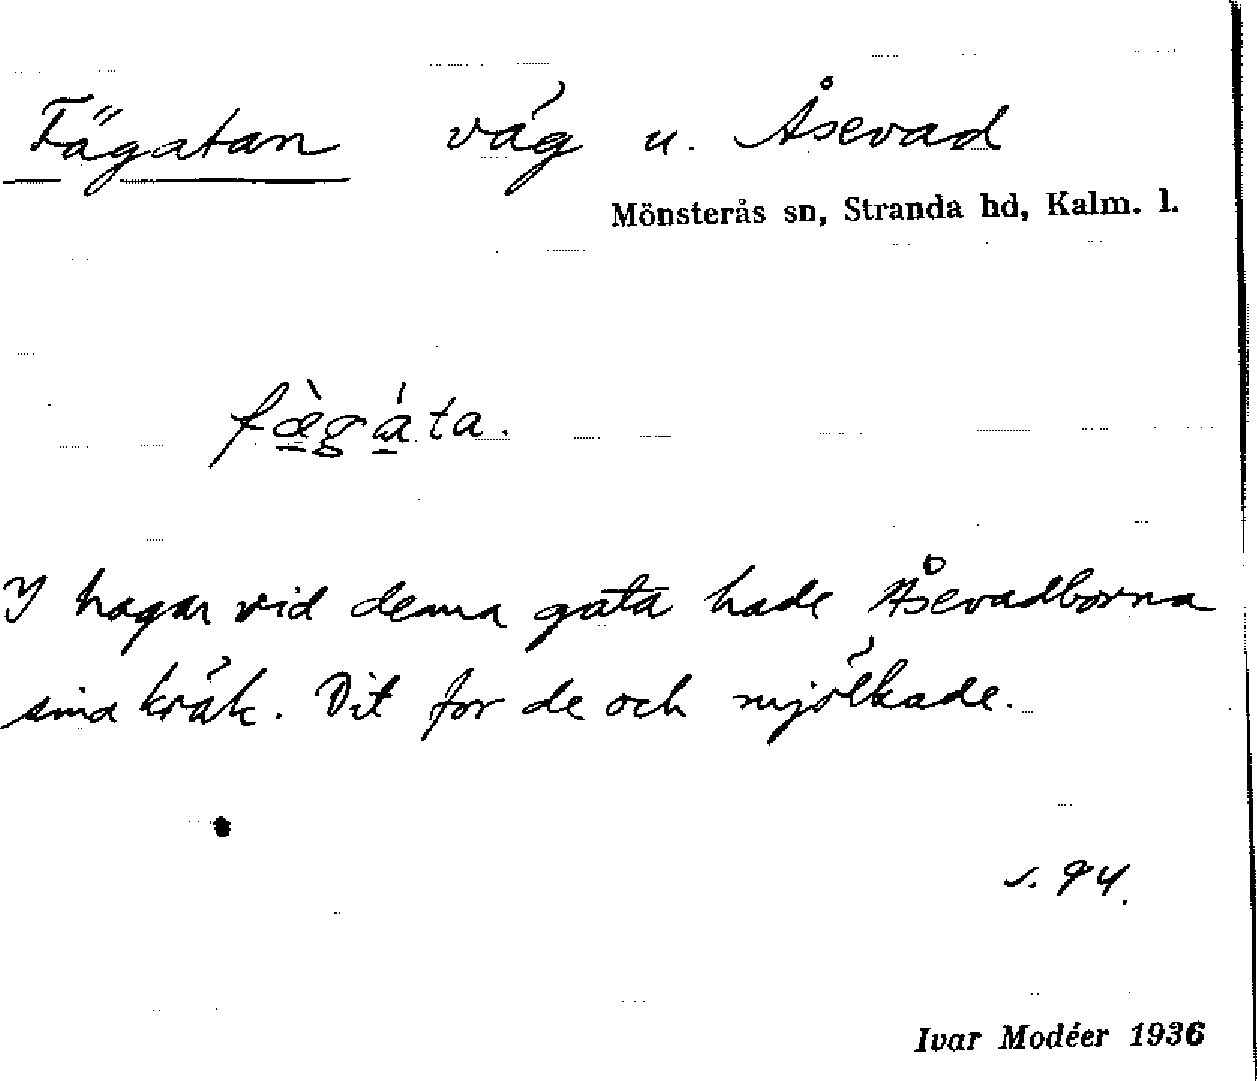 Fägatan väg u. Åsevad
Mönsterås sn, Stranda hd, Kalm. l.
fæ̀gáta.
I hagar vid denna gata hade Åsevadborna
sina kräk. Dit for de och mjölkade.
s. 94.
Ivar Modéer 1936